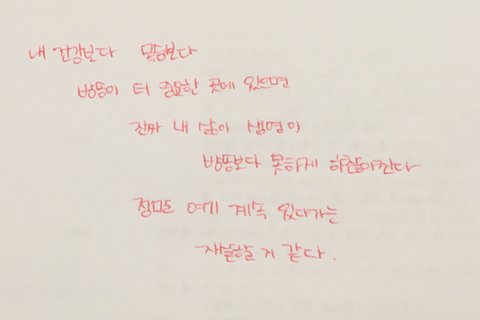 내 건강보다 목숨보다
방송이 더 중요한 곳에 있으면
진짜 내 삶이 생명이
방송보다 못하게 하찮아진다
정말로 여기 계속 있다가는
자살할 거 같다.